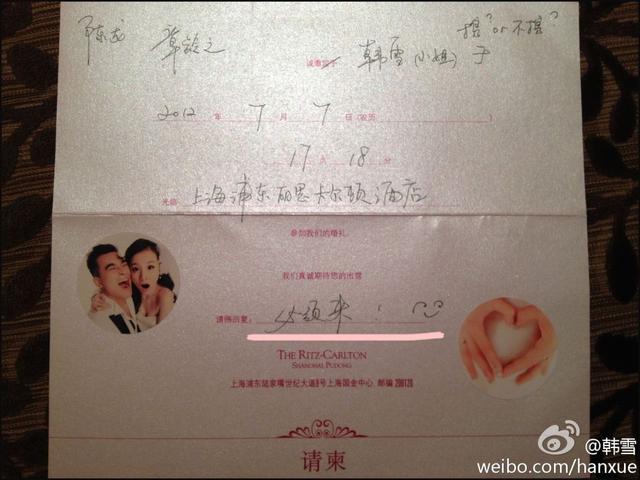 携? or 不携?
陈龙 章龄之 诚邀阁下 韩雪(小姐) 于
2012 年 7 月 7 日(农历 )
17 点 18 分
光临 上海浦东丽思卡尔顿酒店
参加我们的婚礼
我们真诚期待您的出席
请赐回复: 必须来!
THE RITZ-CARLTON
SHANGHAI, PUDONG
上海浦东陆家嘴世纪大道8号上海国金中心, 邮编 200120
请柬
@韩雪
weibo.com/hanxue